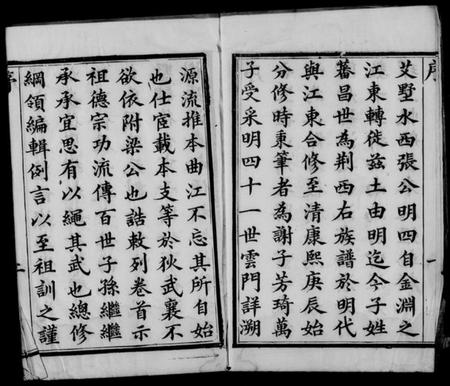 序
艾墅水西張公明四自金淵之
江東轉徙茲土由明迄今子姓
蕃昌世為荆西右族譜於明代
與江東合修至清康熙庚辰始
分修時秉筆者為謝子芳琦萬
子受采明四十一世雲門詳溯
一
源流推本曲江不忘其所自始
也仕宦載本支等於狄武襄不
欲依附梁公也誥敕列卷首示
祖德宗功流傳百世子孫繼繼
承承宜思有以繩其武也總修
綱領編輯例言以至祖訓之謹
序
二